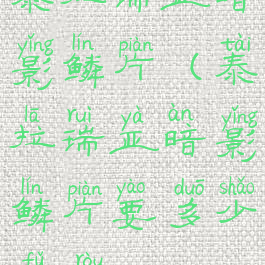 yǐng lín piàn ( tài
影鳞片（泰
lā ruì yà àn yǐng
拉瑞亚暗影
lín piàn yào duō shǎo
鳞片要多少